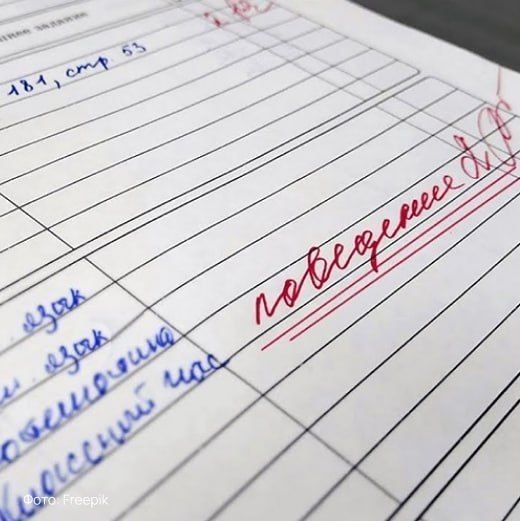 ее задание
181, стр. 53
поведение 2
. язык
. язык
математика
Классный час
Фото: Freepik